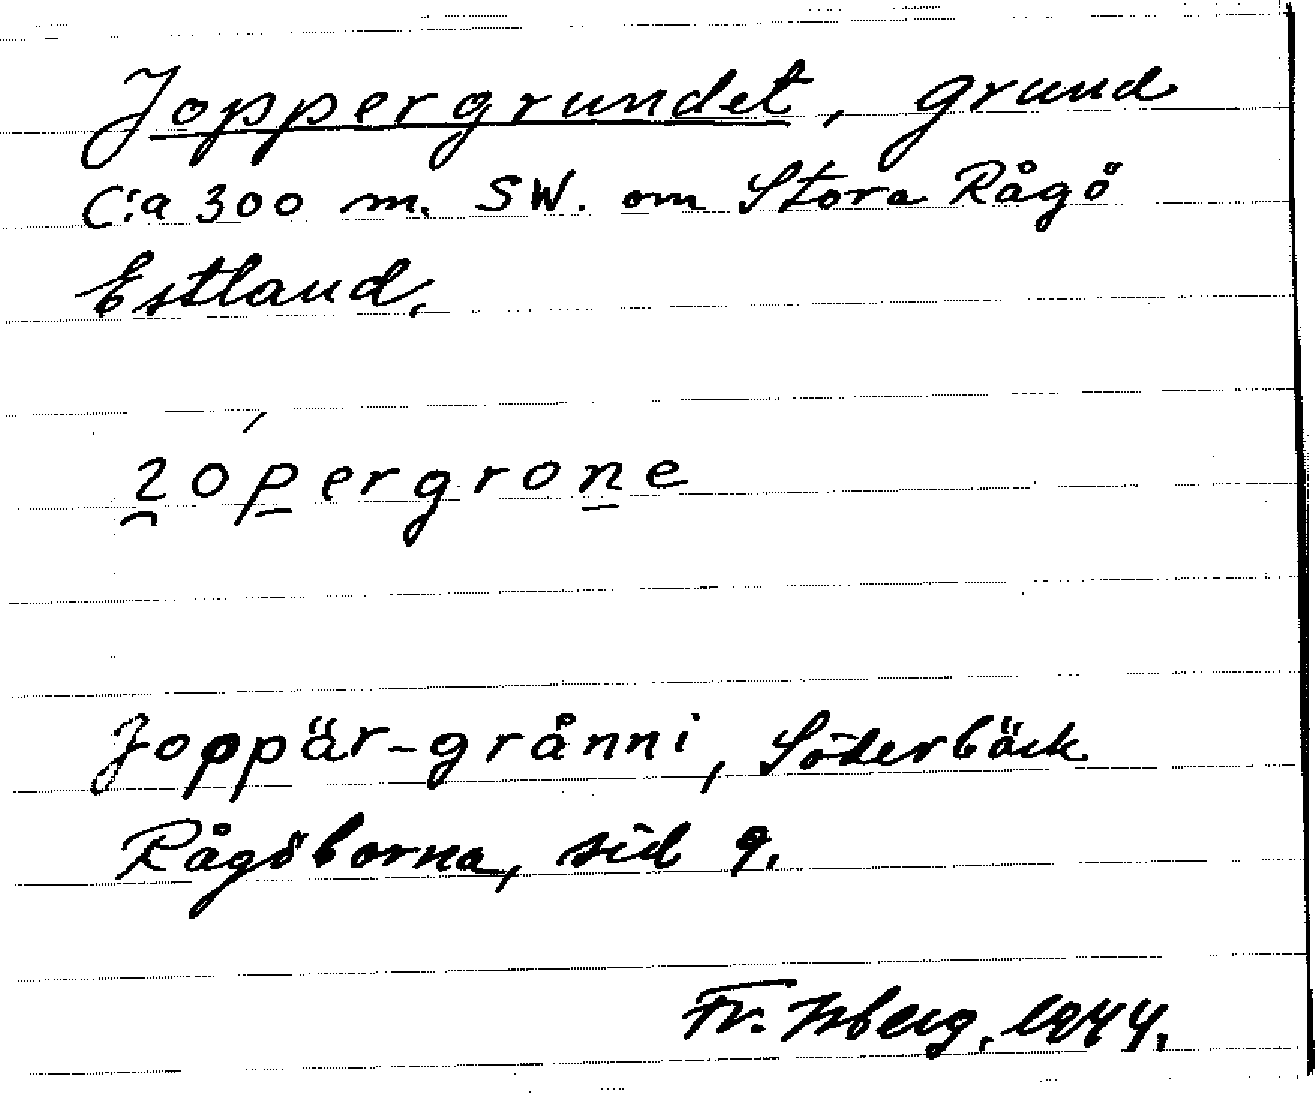 Joppergrundet, grund
C:a 300 m. SW. om Stora Rågö
Estland.
2o´pergrone
Joppär-grånni, Söderbäck
Rågöborna, sid 9.
Fr. Isberg, 1944.